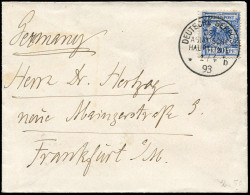 Germany
DEUTSCHE
93
b
Herrn Dr. Hertzog
neue Mainzerstraße 31.
Frankfurt a/M.